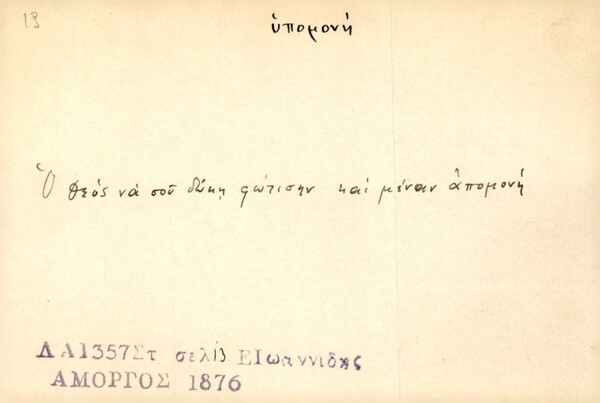 13
ὑπομονή
Ὁ Θεός νά σοῦ δώκῃ φώτισην καί μέναν ἀπομονή
ΛΑ1357Στ σελ13 ΕΙωαννιδης
ΑΜΟΡΓΟΣ 1876